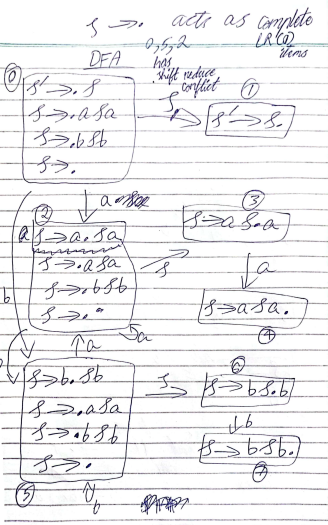 S →. acts as complete
LR(0)
items
0,5,2
has
shift reduce
conflict
DFA
0
S' →. S
S →. aSa
S →. bSb
S →.
S
1
S' → S.
a
2
S → a. Sa
S →. aSa
S →. bSb
S →.
a
S
3
S → a S. a
a
S → aSa.
4
b
a
5
S → b. Sb
S →. aSa
S →. bSb
S →.
b
S
6
S → b S. b
b
S → b Sb.
7